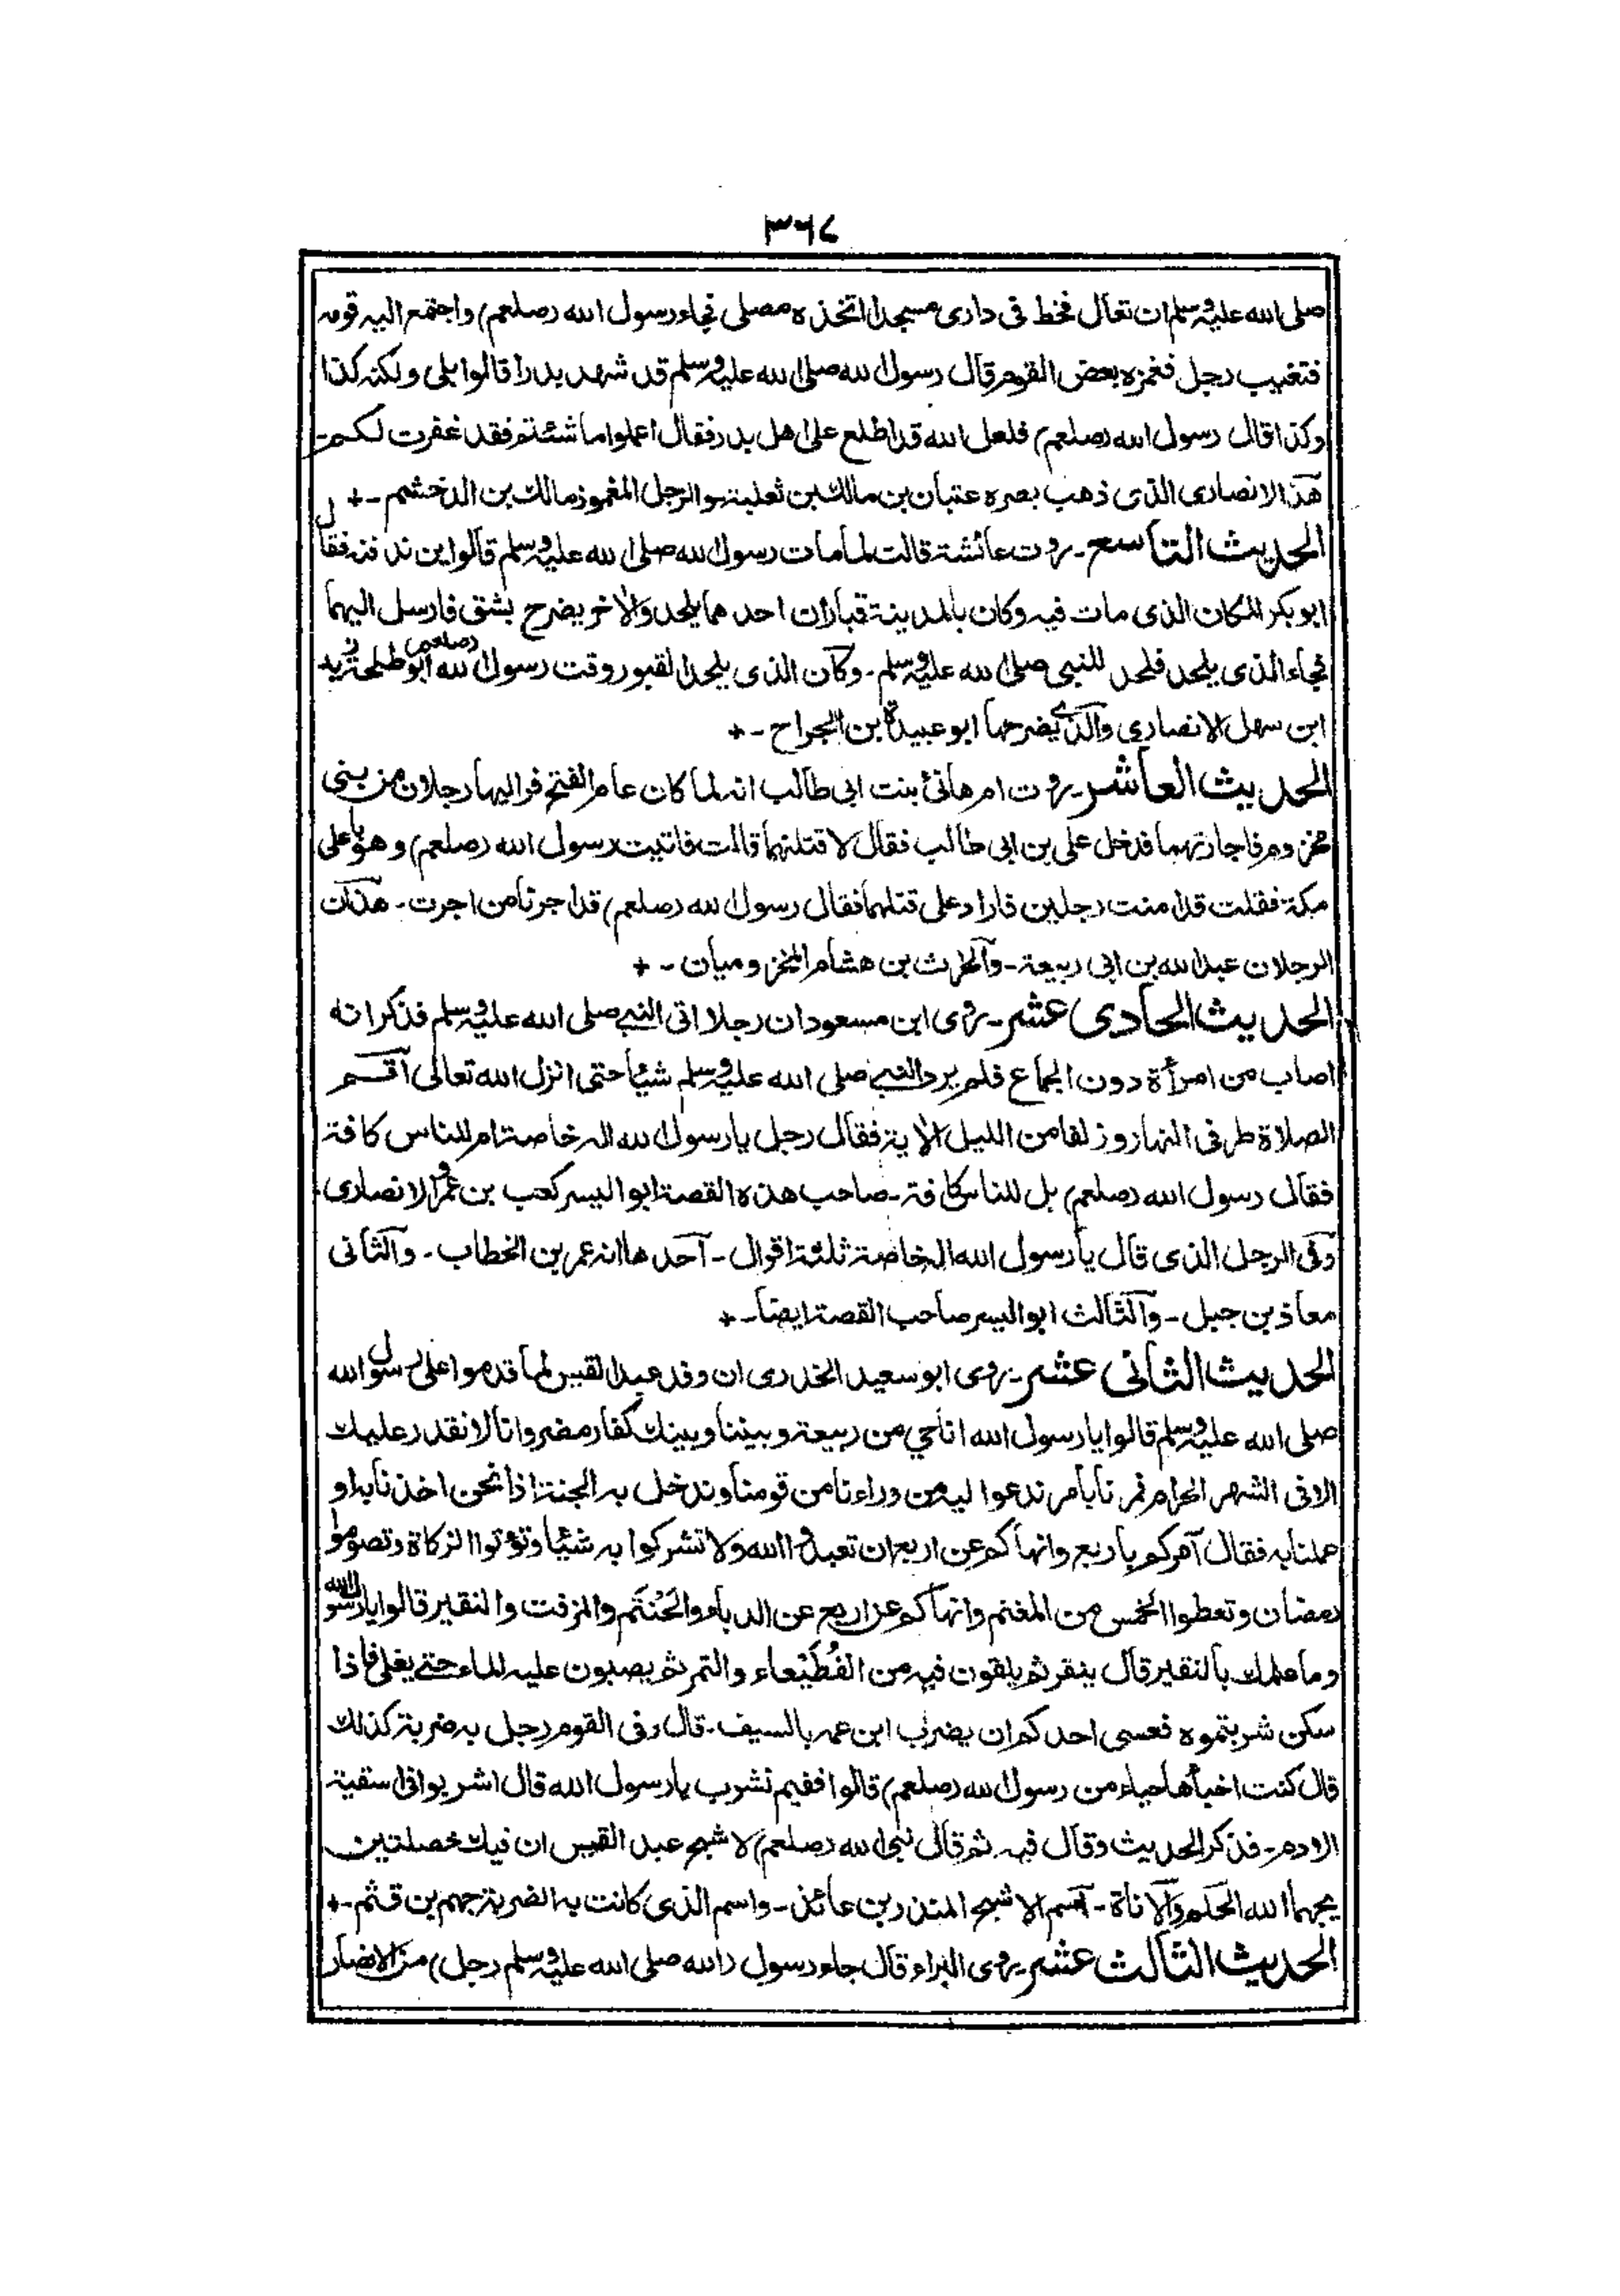 ٣٦٧
صلى الله عليه وسلم ان تعال فخط فى دارى مسجدا اتخذه مصلى فجاء رسول الله (صلعم) واجتمع اليه قومه
فتغيب رجل فغمزه بعض القوم قال رسول الله صلى الله عليه وسلم قد شهد بدرا قالوا بلى ولكنه كذا
وكذا قال رسول الله (صلعم) فلعل الله قد اطلع على اهل بدر فقال اعملوا ما شئتم فقد غفرت لكم -
هذا الانصارى الذى ذهب بصره عتبان بن مالك بن ثعلبة والرجل المغموز مالك بن الدخشم -+
الحديث التاسع - روت عائشة قالت لما مات رسول الله صلى الله عليه وسلم قالوا اين ندفنه فقال
ابو بكر المكان الذى مات فيه وكان بالمدينة قباران احدهما يلحد والاخر يضرح بشق فارسل اليهما
فجاء الذى يلحد فلحد للنبى صلى الله عليه وسلم - وكان الذى يلحد القبور وقت رسول الله (صلعم) ابو طلحة زيد
ابن سهل الانصارى والذى يضرحها ابو عبيدة ابن الجراح -+
الحديث العاشر - روت ام هانئ بنت ابى طالب انه لما كان عام الفتح فر اليها رجلان من بنى
مخزوم فاجارتهما فدخل على بن ابى طالب فقال لاقتلنهما قالت فاتيت رسول الله (صلعم) وهو باعلى
مكة فقلت قد امنت رجلين فاراد على قتلهما فقال رسول الله (صلعم) قد اجرنا من اجرت - هذان
الرجلان عبد الله بن ابى ربيعة - والحارث بن هشام المخزوميان -+
الحديث الحادى عشر - روى ابن مسعود ان رجلا اتى النبى صلى الله عليه وسلم فذكر انه
اصاب من امرأة دون الجماع فلم يرد النبى صلى الله عليه وسلم شيئا حتى انزل الله تعالى اقم
الصلاة طرفى النهار وزلفا من الليل الاية فقال رجل يا رسول الله اله خاصة ام للناس كافة
فقال رسول الله (صلعم) بل للناس كافة - صاحب هذه القصة ابو اليسر كعب بن عمرو الانصارى
وفى الرجل الذى قال يا رسول الله اله خاصة ثلثة اقوال - احدها انه عمر بن الخطاب - والثانى
معاذ بن جبل - والثالث ابو اليسر صاحب القصة ايضا -+
الحديث الثانى عشر - روى ابو سعيد الخدرى ان وفد عبد القيس لما قدموا على رسول الله
صلى الله عليه وسلم قالوا يا رسول الله انا حي من ربيعة وبيننا وبينك كفار مضر وانا لا نقدر عليك
الا فى الشهر الحرام فمرنا بامر ندعوا اليه من وراءنا من قومنا وندخل به الجنة اذا نحن اخذنا به او
عملنا به فقال آمركم باربع وانهاكم عن اربع ان تعبدوا الله ولا تشركوا به شيئا وتؤتوا الزكاة وتصوموا
رمضان وتعطوا الخمس من المغنم وانهاكم عن اربع عن الدباء والحَنْتَم والمزفت والنقير قالوا يا رسول الله
وما علمك بالنقير قال ينقر ثم يلقون فيه من القُطَيْعاء والتمر ثم يصبون عليه الماء حتى يغلى فاذا
سكن شربتموه فعسى احدكم ان يضرب ابن عمه بالسيف - قال وفى القوم رجل به ضربة كذلك
قال كنت اخبأها حياء من رسول الله (صلعم) قالوا ففيم نشرب يا رسول الله قال اشربوا فى اسقية
الادم - فذكر الحديث وقال فيه ثم قال نبى الله (صلعم) لاشج عبد القيس ان فيك خصلتين
يحبهما الله الحلم والاناة - اسم الاشج المنذر بن عائذ - واسم الذى كانت به الضربة جهم بن قثم -+
الحديث الثالث عشر - روى البراء قال جاء رسول (الله صلى الله عليه وسلم رجل) من الانصار